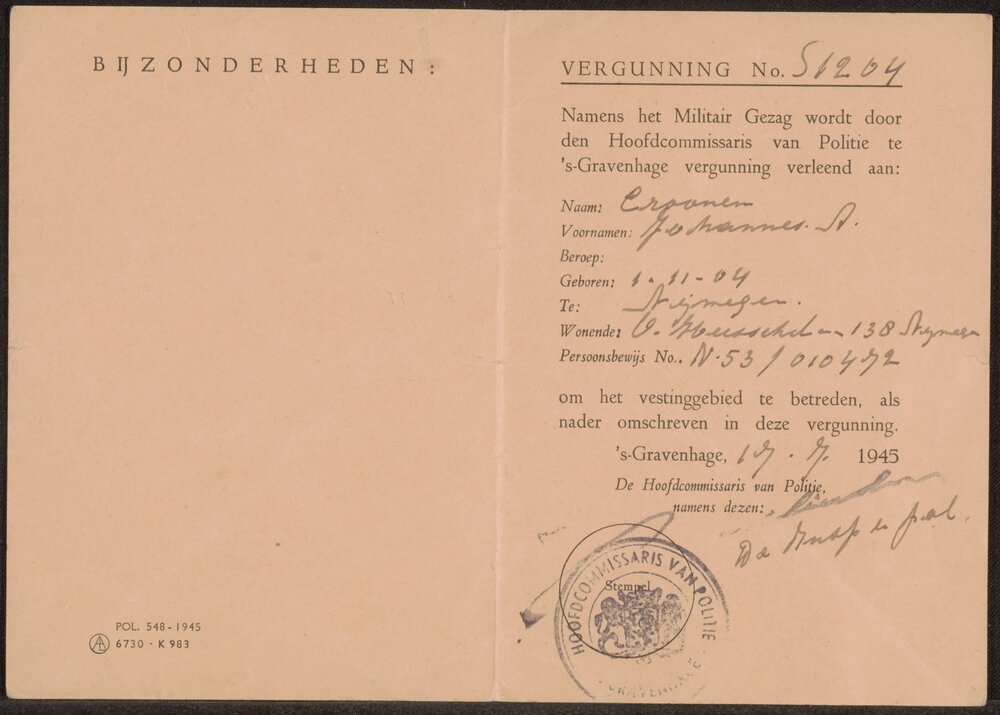 BIJZONDERHEDEN:
POL. 548-1945
6730 - K 983
VERGUNNING No. 51204
Namens het Militair Gezag wordt door
den Hoofdcommissaris van Politie te
's-Gravenhage vergunning verleend aan:
Naam: Croonen
Voornamen: Johannes. A.
Beroep:
Geboren: 1-11-04
Te: Nijmegen.
Wonende: 138 Nijmegen
Persoonsbewijs No.. N.53/010472
om het vestinggebied te betreden, als
nader omschreven in deze vergunning.
's-Gravenhage, 17.7. 1945
De Hoofdcommissaris van Politie,
namens dezen:
De Insp v pol.
Stempel
HOOFDCOMMISSARIS VAN POLITIE
'S GRAVENHAGE